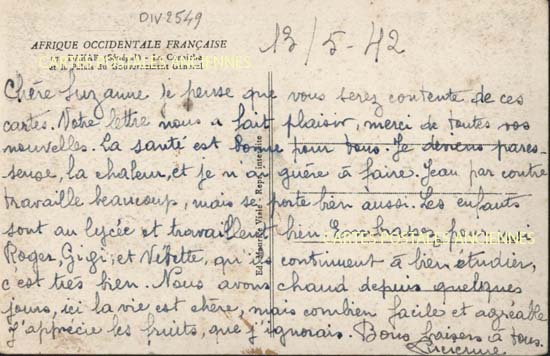 DIV2549
13/5-42
AFRIQUE OCCIDENTALE FRANÇAISE
DAKAR (Sénégal) - La Corniche
et le Palais du Gouvernement Général
Chère Suzanne Je pense que vous serez contente de ces
cartes. Votre lettre nous a fait plaisir, merci de toutes vos
nouvelles. La santé est bonne pour tous. Je deviens pares-
seuse, la chaleur, et je n'ai guère à faire. Jean par contre
travaille beaucoup, mais se porte bien aussi. Les enfants
sont au lycée et travaillent bien. Embrassez pour nous
Roger, Gigi, et Vébette, qu'ils continuent à bien étudier,
c'est très bien. Nous avons chaud depuis quelques
jours, ici la vie est chère, mais combien facile et agréable
J'apprécie les fruits, que j'ignorais. Bons baisers à tous.
Ed. Maurice Viale - Repr. Interdite
CARTES-POSTALES-ANCIENNES
CARTES-POSTALES-ANCIENNES